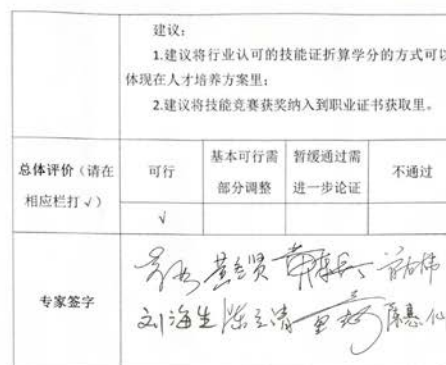 建议：
1.建议将行业认可的技能证折算学分的方式可以
体现在人才培养方案里；
2.建议将技能竞赛获奖纳入到职业证书获取里。
总体评价（请在
相应栏打√）
可行
基本可行需
部分调整
暂缓通过需
进一步论证
不通过
√
专家签字
刘海生